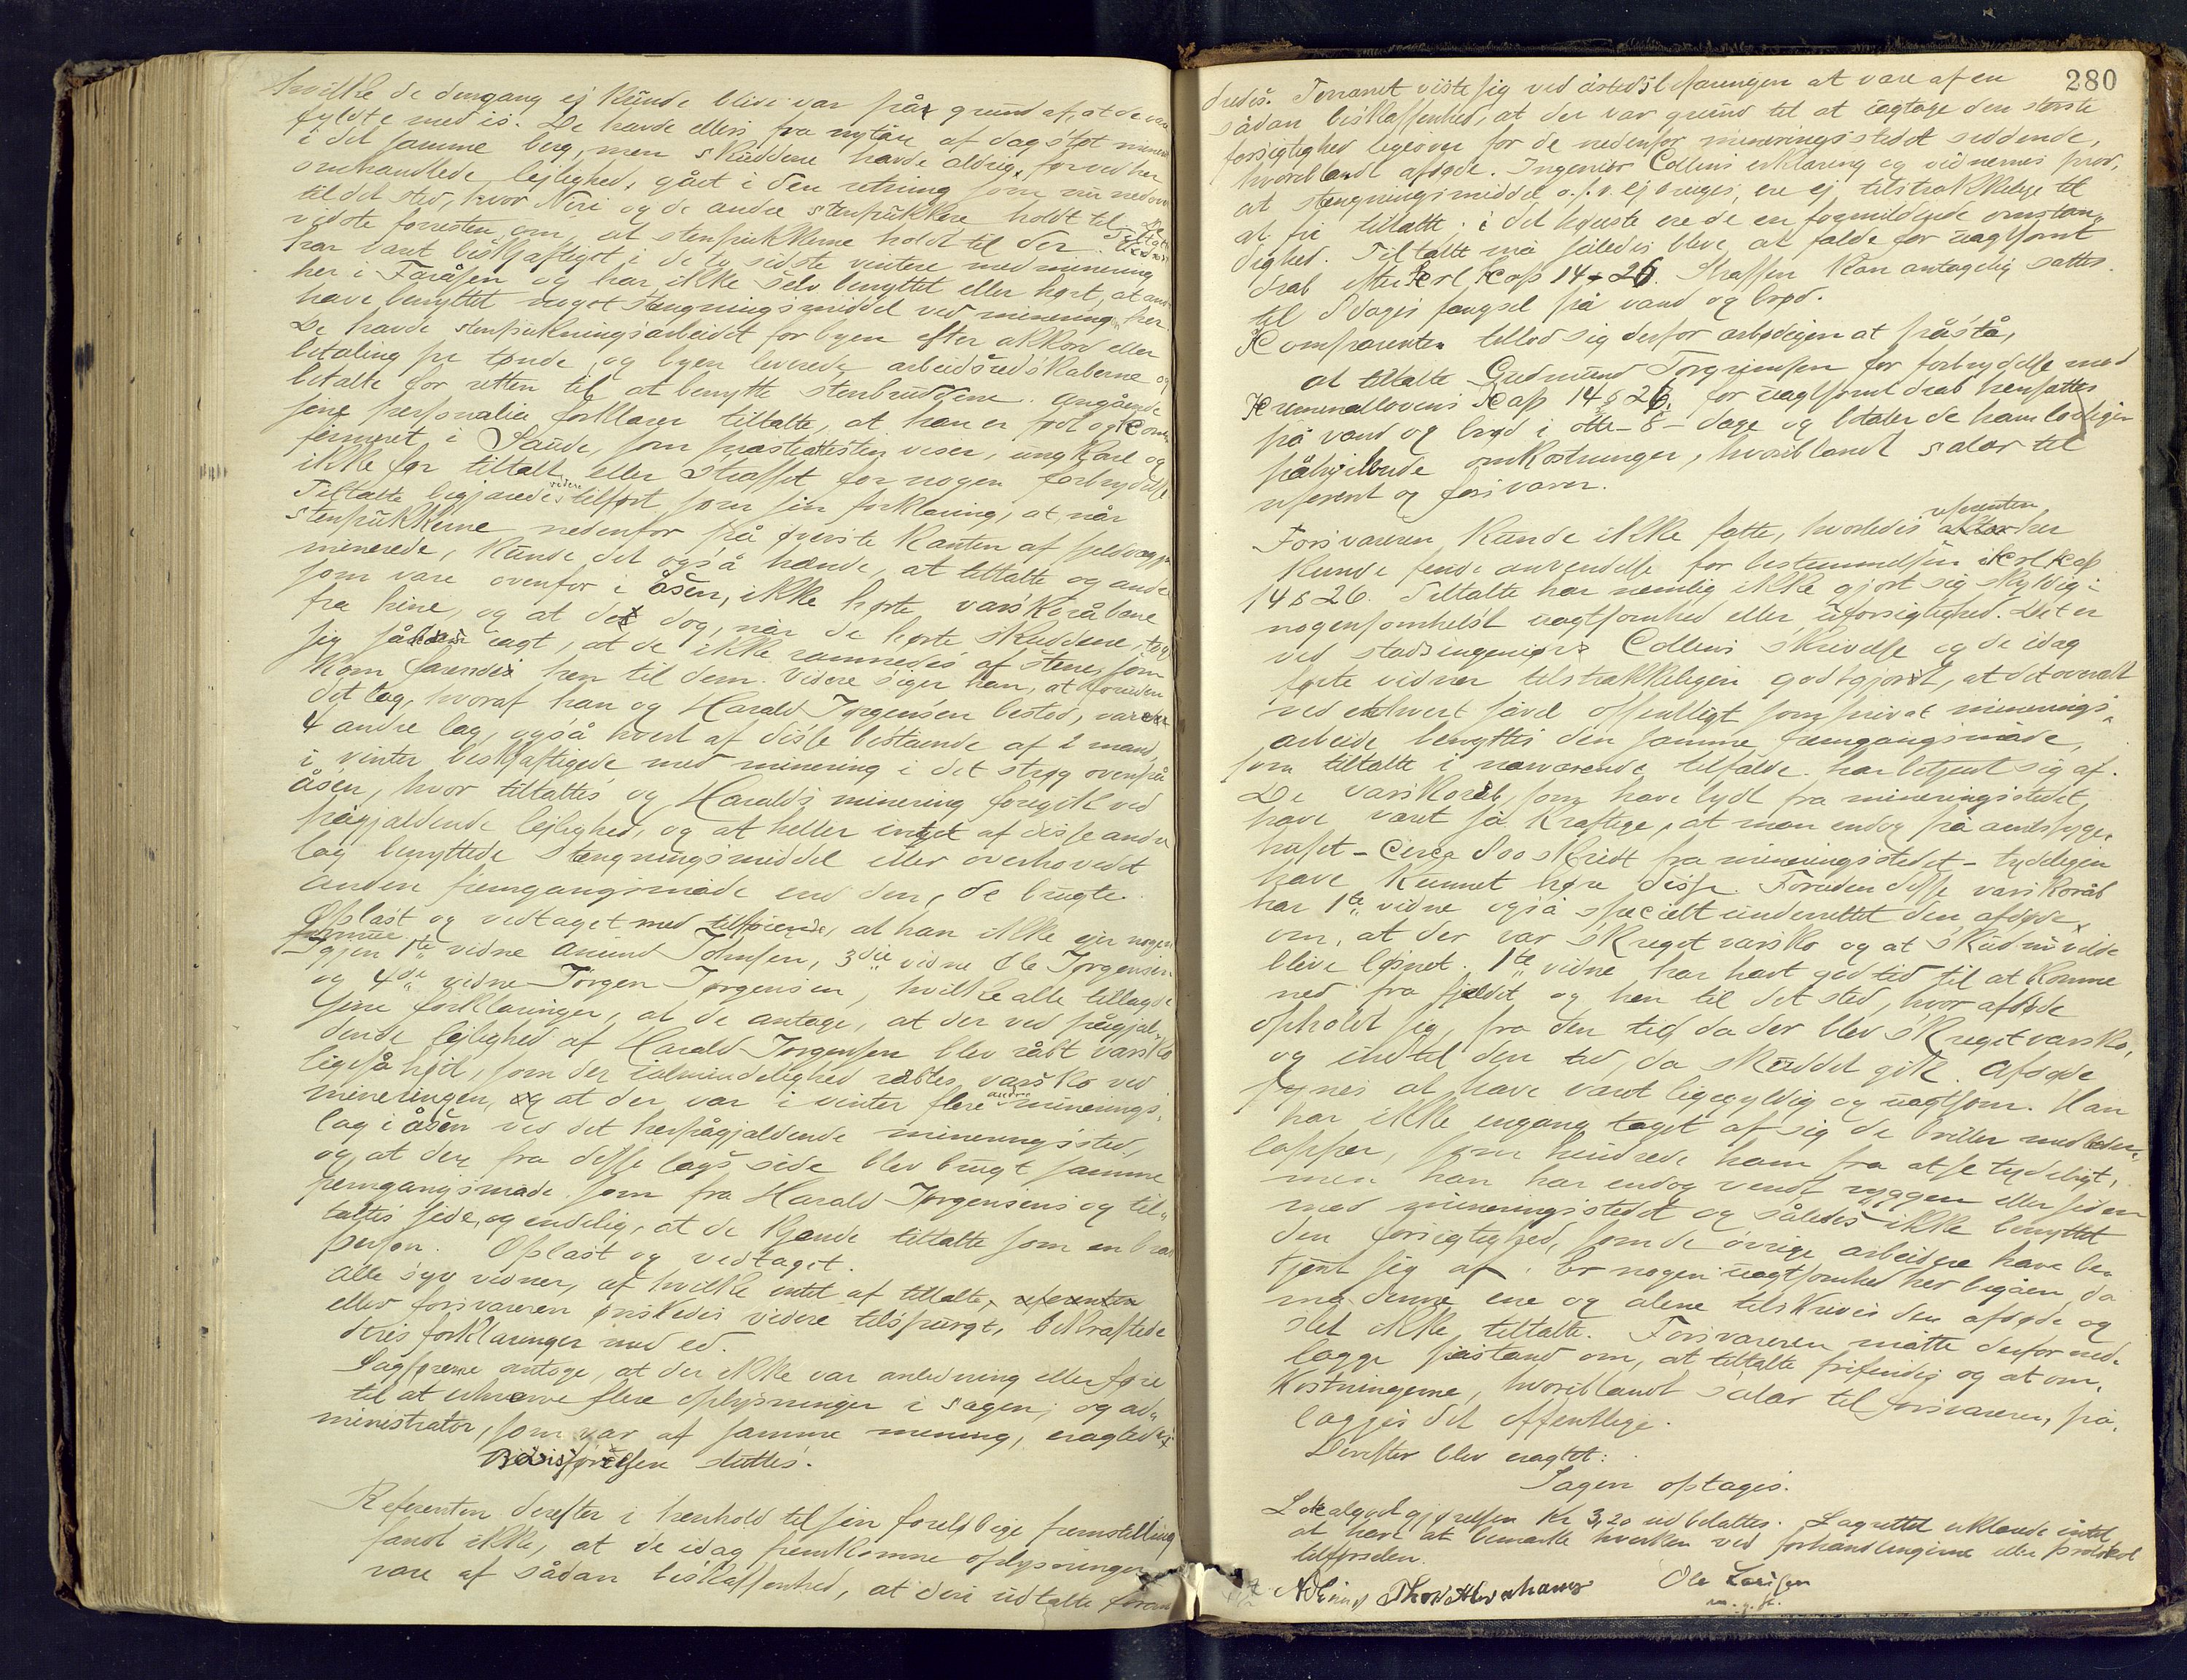 hvilke de dengang ej kunde blive var på grund af, at de vare
fyldte med is. De havde ellers fra nytår af dagstøt mineret
i det samme berg, men skuddene havde aldrig, før ved her
omhandlede lejlighed, gået i den retning som nu nedover
til det sted, hvor Niri og de andre stenpukkere holdt til. De
vidste forresten om, at stenpukkerne holdt til der. Tiltalte
har været beskjæftiget i de to sidste vintere med minering
her i Faråsen og har ikke selv benyttet eller hørt, at andre
have benyttet noget stængningsmiddel ved minering her.
De havde stenpukningsarbeidet for byen efter akkord eller
betaling pr tønde, og byen leverede arbeidsredskaberne og
betalte for retten til at benytte stenbruddene. Angående
sine personalia forklarer tiltalte, at han er født og kon-
firmeret i Saude, som præsteattesten viser, ung karl og
ikke før tiltalt eller straffet for nogen forbrydelse.
Tiltalte begjærede videre tilført som sin forklaring, at når
stenpukkerne nedenfor på øverste kanten af fjeldvæggen
minerede, kunde det også hænde, at tiltalte og andre
som vare ovenfor i åsen, ikke hørte varskoråbene
fra hine, og at de dog, når de hørte skuddene, tog
sig såvidt iagt, at de ikke rammedes af stene, som
kom farende hen til dem. Videre siger han, at foruden
det lag, hvoraf han og Harald Jørgensen bestod, var der
4 andre lag, også hvert af disse bestående af 2 mand,
i vinter beskjæftigede med minering i det strøg ovenpå
åsen, hvor tiltaltes og Haralds minering foregik ved
pågjældende lejlighed, og at heller intet af disse andre
lag benyttede stængningsmiddel eller overhovedet
anden fremgangsmåde end den, de brugte.
Oplæst og vedtaget med tilføiende, at han ikke ejer nogen
formue.
Igjen 1ste vidne Amund Johnsen, 3die vidne Ole Jørgensen
og 4de vidne Jørgen Jørgensen, hvilke alle tillagde
sine forklaringer, at de antage, at der ved pågjæl-
dende lejlighed af Harald Jørgensen blev råbt varsko
ligeså højt, som der i almindelighed råbtes varsko ved
mineringen, og at der var i vinter flere andre minerings-
lag i åsen ved det herpågjældende mineringssted,
og at der fra disse lags side blev brugt samme
fremgangsmåde som fra Harald Jørgensens og til-
taltes side, og endelig, at de kjende tiltalte som en bra
person. Oplæst og vedtaget.
Alle syv vidner, af hvilke intet af tiltalte, referenten
eller forsvareren ønskedes videre tilspurgt, bekræftede
deres forklaringer med ed.
Sagførerne antoge, at der ikke var anledning eller føie
til at erhverve flere oplysninger i sagen; og ad-
ministrator, som var af samme mening, eragtede at
vidneførelsen sluttes.
Referenten derefter i henhold til sin foreløbige fremstilling
fandt ikke, at de idag fremkomne oplysninger
vare af sådan beskaffenhed, at deri udtalte foran-
280
dredes. Terrænet viste sig ved åstedsbefaringen at være af en
sådan beskaffenhed, at der var grund til at iagttage den største
forsigtighed ligeover for de nedenfor mineringsstedet siddende,
hvoriblandt afdøde. Ingeniør Colletts erklæring og vidnernes prov,
at stængningsmiddel o.s.v. ej bruges, ere ej tilstrækkelige til
at fri tiltalte; i det høieste ere de en formildende omstæn-
dighed. Tiltalte må således blive at fælde for uagtsomt
drab efter Krl Kap 14 § 26. Straffen kan antagelig sættes
til 8 dages fængsel på vand og brød.
Komparenten tillod sig derfor ærbødigen at påstå,
at tiltalte Gudmund Torgrimsen for forbrydelse mod
Kriminallovens Kap 14 § 26 for uagtsomt drab hensættes
på vand og brød i otte – 8 – dage og betaler de ham lovligen
påhvilende omkostninger, hvoriblandt salær til
referent og forsvarer.
Forsvareren kunde ikke fatte, hvorledes referenten her
kunde finde anvendelse for bestemmelsen i Krl kap
14 § 26. Tiltalte har nemlig ikke gjort sig skyldig i
nogensomhelst uagtsomhed eller uforsigtighed. Det er
ved stadsingeniørs Colletts skrivelse og de idag
førte vidner tilstrækkeligen godtgjort, at det overalt
ved ethvert såvel offentligt som privat minerings-
arbeide benyttes den samme fremgangsmåde,
som tiltalte i nærværende tilfælde har betjent sig af.
De varskoråb, som have lydt fra mineringsstedet,
have været så kraftige, at man endog på amtssyge-
huset – circa 800 skridt fra mineringsstedet – tydeligen
have kunnet høre disse. Foruden disse varskoråb
har 1ste vidne også specielt underrettet den afdøde
om, at der var skreget varsko og at skud nu vilde
blive løsnet. 1ste vidne har havt god tid til at komme
ned fra fjeldet og hen til det sted, hvor afdøde
opholdt sig, fra den tid da der blev skreget varsko,
og indtil den tid, da skuddet gik. Afdøde
synes at have været ligegyldig og uagtsom. Han
har ikke engang taget af sig de briller med læder-
lapper, som hindrede ham fra at se tydeligt,
men han har endog vendt ryggen eller siden
mod mineringsstedet og således ikke benyttet
den forsigtighed, som de øvrige arbeidere have be-
tjent sig af. Er nogen uagtsomhed her begåen, da
må denne ene og alene tilskrives den afdøde og
slet ikke tiltalte. Forsvareren måtte derfor ned-
lægge påstand om, at tiltalte frifindes og at om-
kostningerne, hvoriblandt salær til forsvareren, på-
lægges det offentlige.
Derefter blev eragtet:
Sagen optages.
Lokalgodtgjørelsen Kr 3,20 udbetaltes. Lagrettet erklærede intet
at have at bemærke hverken ved forhandlingerne eller protokol-
tilførselen.
Thord Abrahams Ole Larsen
m. p. p.